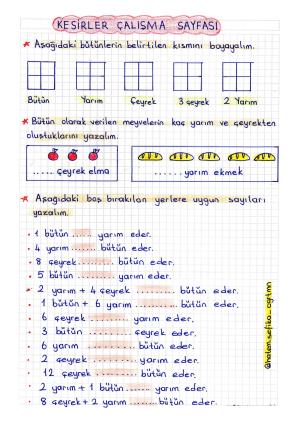 KESİRLER ÇALIŞMA SAYFASI
* Aşağıdaki bütünlerin belirtilen kısmını boyayalım.
Bütün Yarım Çeyrek 3 çeyrek 2 Yarım
* Bütün olarak verilen meyvelerin kaç yarım ve çeyrekten
oluştuklarını yazalım.
...... çeyrek elma
...... yarım ekmek
* Aşağıdaki boş bırakılan yerlere uygun sayıları
yazalım.
• 1 bütün ...... yarım eder.
• 4 yarım ...... bütün eder.
• 8 çeyrek ...... bütün eder.
• 5 bütün ...... yarım eder.
• 2 yarım + 4 çeyrek ...... bütün eder.
• 1 bütün + 6 yarım ...... bütün eder.
• 6 çeyrek ...... yarım eder.
• 3 bütün ...... çeyrek eder.
• 6 yarım ...... bütün eder.
• 2 çeyrek ...... yarım eder.
• 12 çeyrek ...... bütün eder.
• 2 yarım + 1 bütün ...... yarım eder.
• 8 çeyrek + 2 yarım ...... bütün eder.